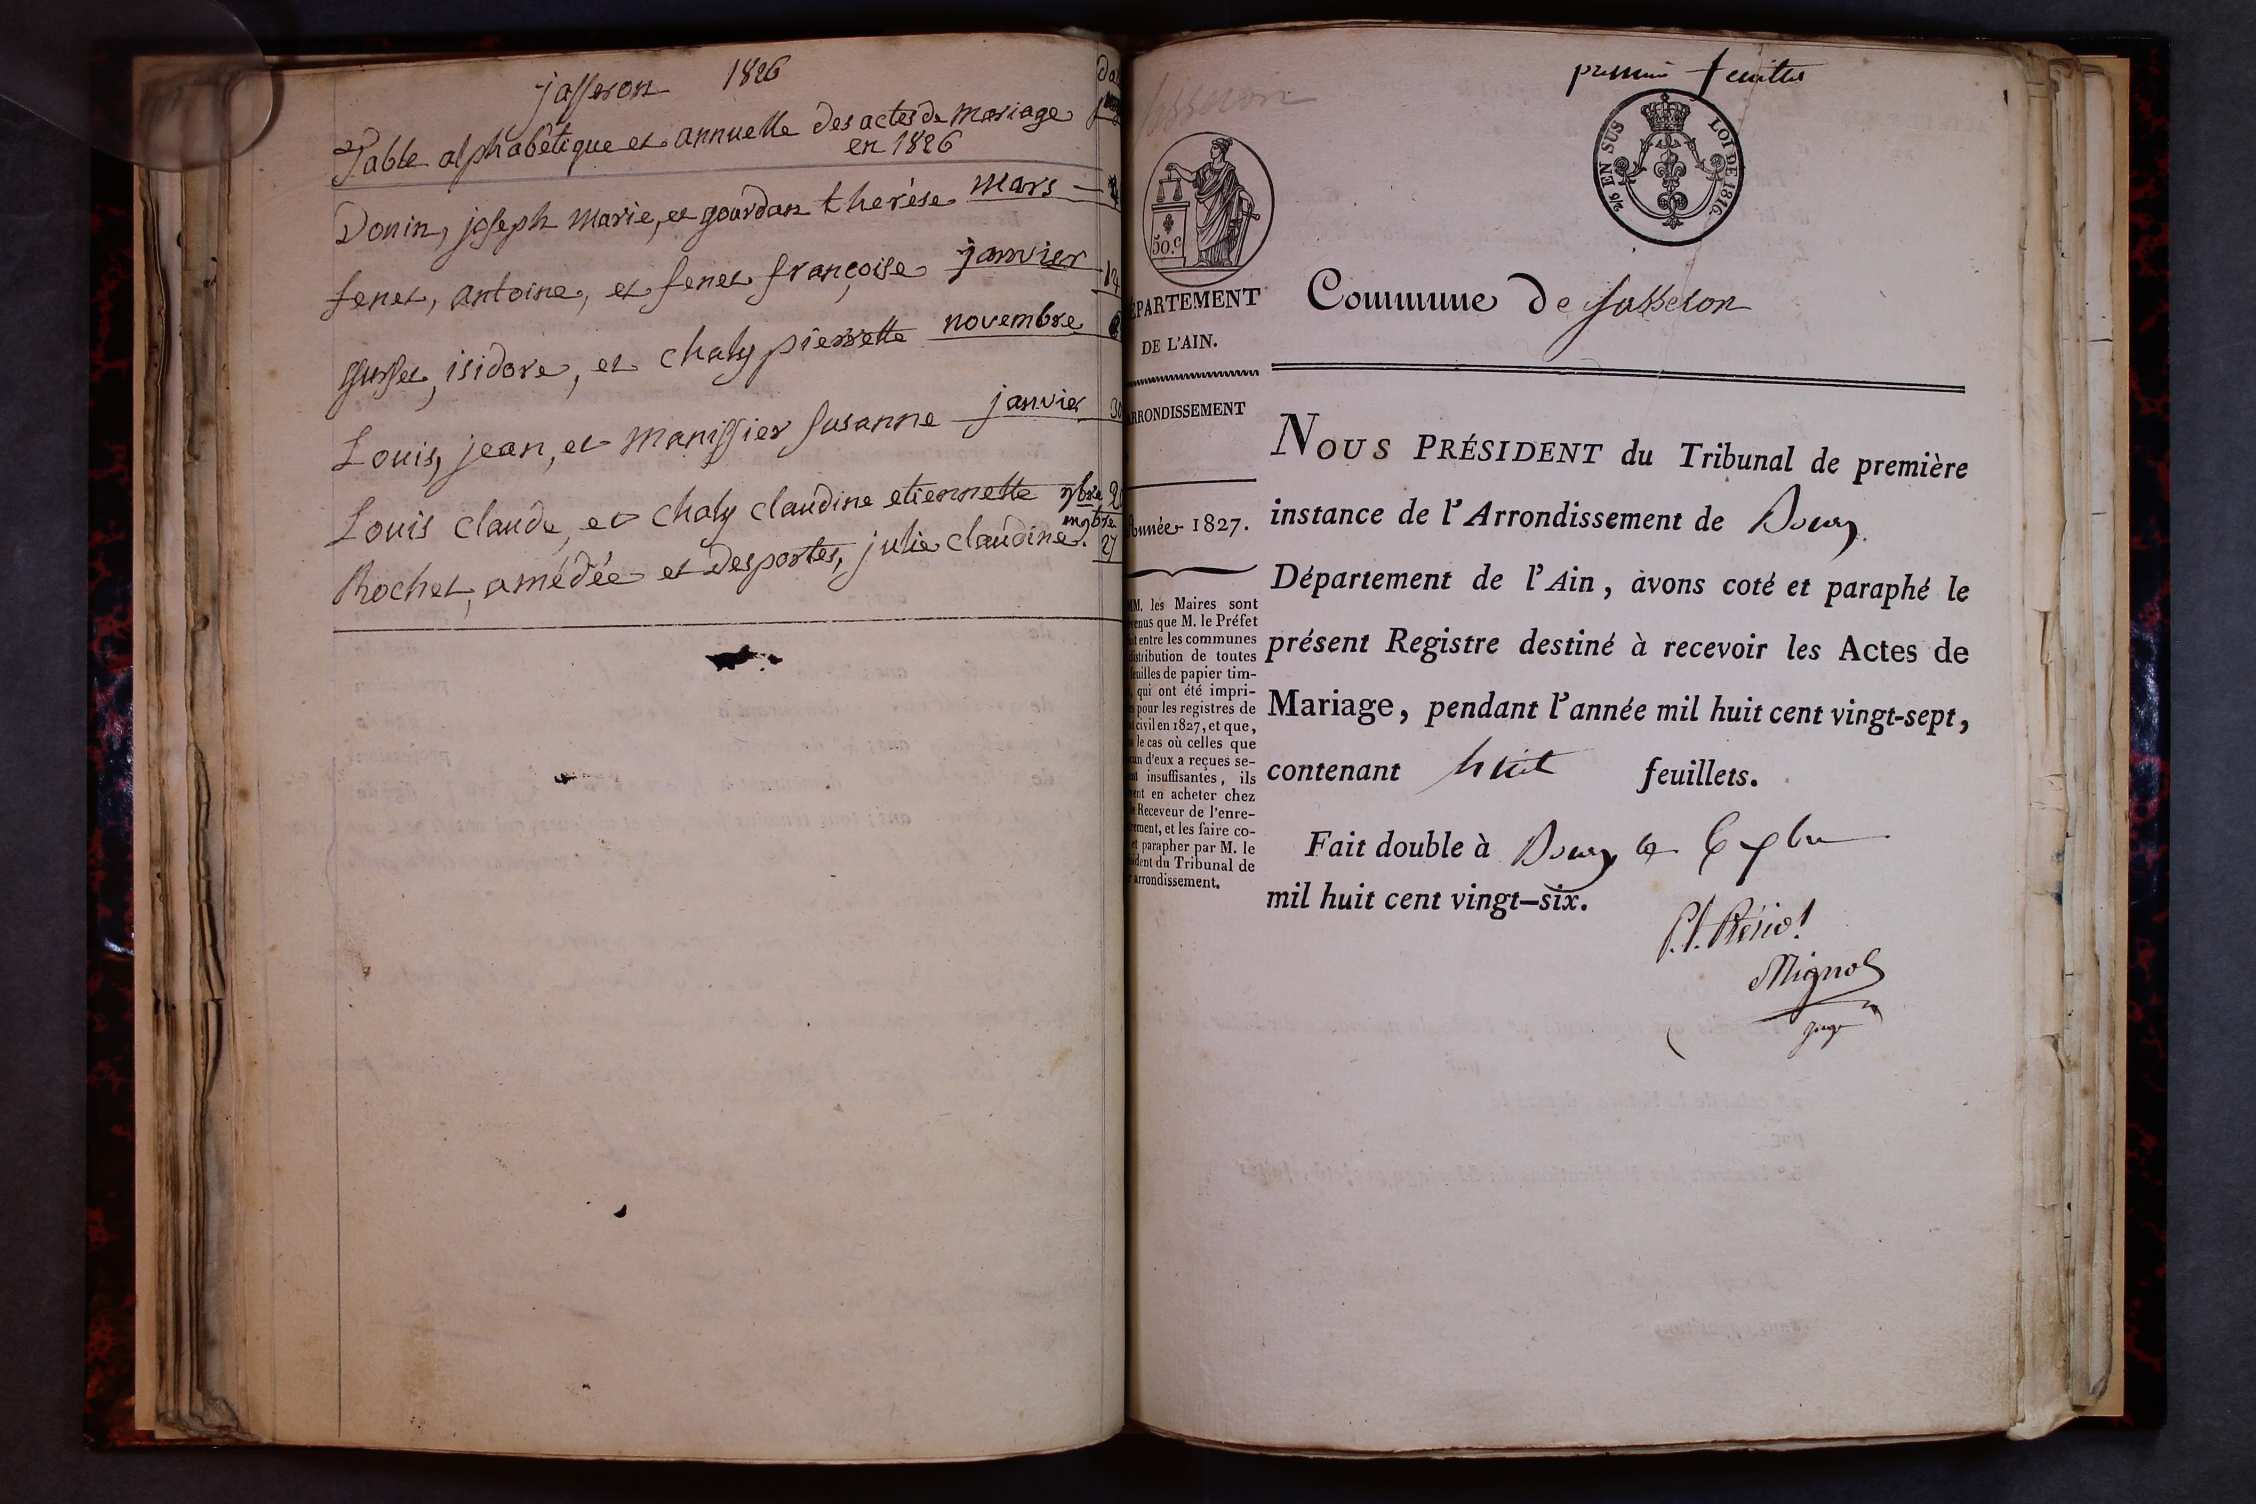 jasseron 1826
Table alphabétique et annuelle des actes de mariage
en 1826
Donin, joseph marie, et gourdan therése mars
fenet, antoine, et fenet françoise janvier 14
isidore, et chaly pierrette novembre
Louis, jean, et manissier susanne janvier 30
Louis claude, et chaly claudine etiennette 9bre
Rochet, amédée et desportes, julie claudine. 27
jasseron
premier feuillet
2/5 EN SUS LOI DE 1816.
50.c
ÉPARTEMENT
DE L'AIN.
Commune de jasseron
ARRONDISSEMENT
Année 1827.
MM. les Maires sont
venus que M. le Préfet
entre les communes
distribution de toutes
feuilles de papier tim-
, qui ont été impri-
pour les registres de
civil en 1827, et que,
le cas où celles que
d'eux a reçues se-
insuffisantes, ils
en acheter chez
Receveur de l'enre-
et les faire co-
et parapher par M. le
du Tribunal de
arrondissement.
NOUS PRÉSIDENT du Tribunal de première
instance de l'Arrondissement de Bourg
Département de l'Ain, avons coté et paraphé le
présent Registre destiné à recevoir les Actes de
Mariage, pendant l'année mil huit cent vingt-sept,
contenant huit feuillets.
Fait double à Bourg le 6
mil huit cent vingt-six.
Mignot
juge